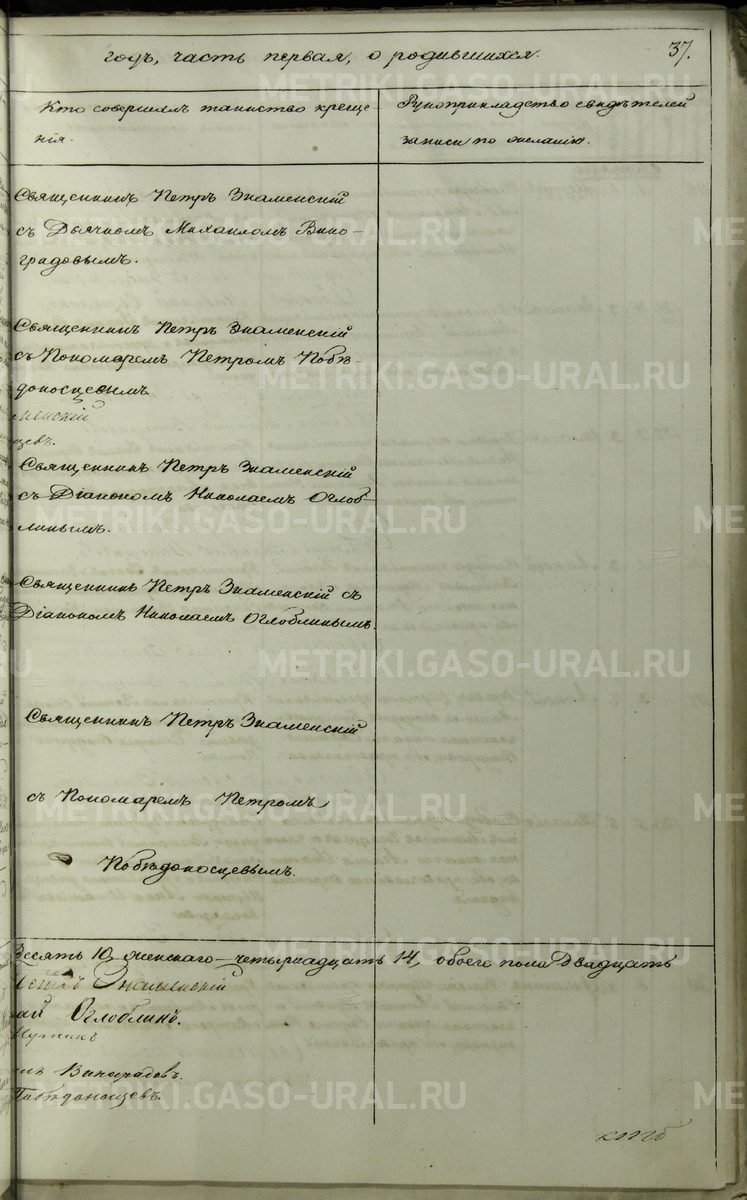 годъ, часть первая, о родившихся. 37.
Кто совершалъ таинство креще-
нія.
Рукоприкладство свидѣтелей
записи по желанію.
Священникъ Петръ Знаменскій
съ Дьячкомъ Михаиломъ Вино-
градовымъ.
Священникъ Петръ Знаменскій
съ Пономаремъ Петромъ Побѣ-
доносцевымъ.
менскій
цевъ.
Священникъ Петръ Знаменскій
съ Діакономъ Николаемъ Оглоб-
линымъ.
Священникъ Петръ Знаменскій съ
Діакономъ Николаемъ Оглоблинымъ.
Священникъ Петръ Знаменскій
съ Пономаремъ Петромъ
Побѣдоносцевымъ.
десять 10, женскаго – четырнадцать 14, обоего пола двадцать
Петръ Знаменскій
ай Оглоблинъ.
лъ Виноградовъ.
Побѣдоносцевъ.
METRIKI.GASO-URAL.RU